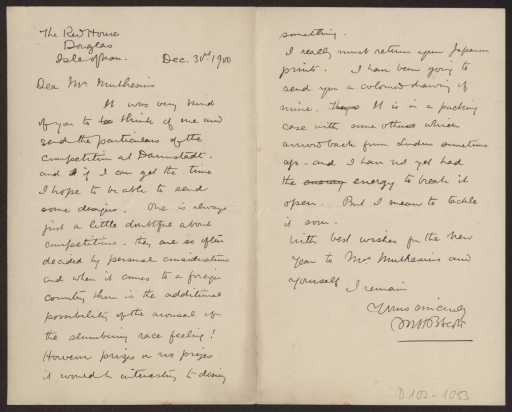 The Red House
Douglas
Isle of Man.
Dec. 30th 1900
Dear Mr Muthesius
It was very kind
of you to think of me and
send the particulars of the
competition at Darmstadt.
and if I can get the time
I hope to be able to send
some designs. One is always
just a little doubtful about
competitions. they are so often
decided by personal considerations
and when it comes to a foreign
country there is the additional
possibility of the arousal of
the slumbering race feeling!
However prizes or no prizes
it would be interesting to design
something.
I really must return your Japanese
prints. I have been going to
send you a coloured drawing of
mine. It is in a packing
case with some others which
arrived back from London sometime
ago - and I have not yet had
the energy to break it
open. But I mean to tackle
it soon.
With best wishes for the New
Year to Mrs Muthesius and
yourself I remain
Yours sincerely
MHBScott
D 102 - 1053